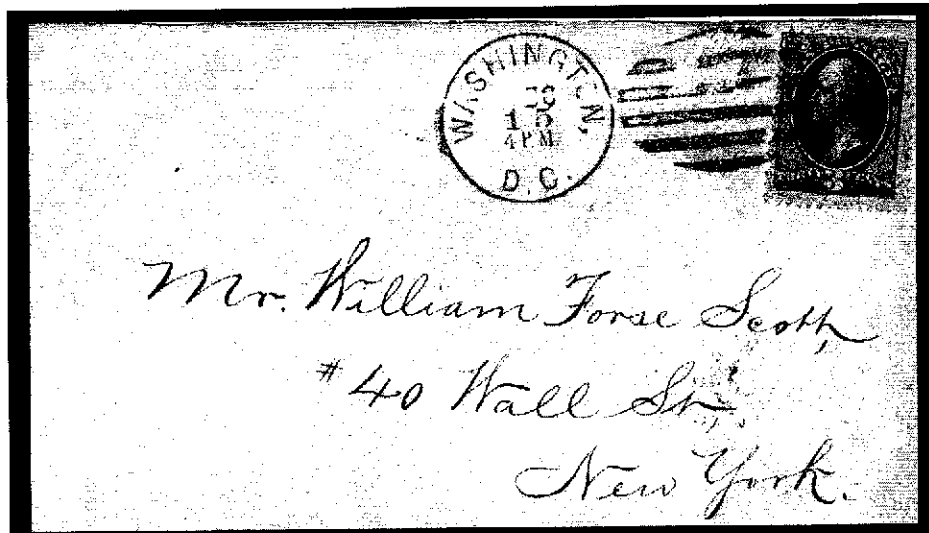 WASHINGTON,
15
4 PM
D.C.
Mr. William Forse Scott,
#40 Wall St.,
New York.